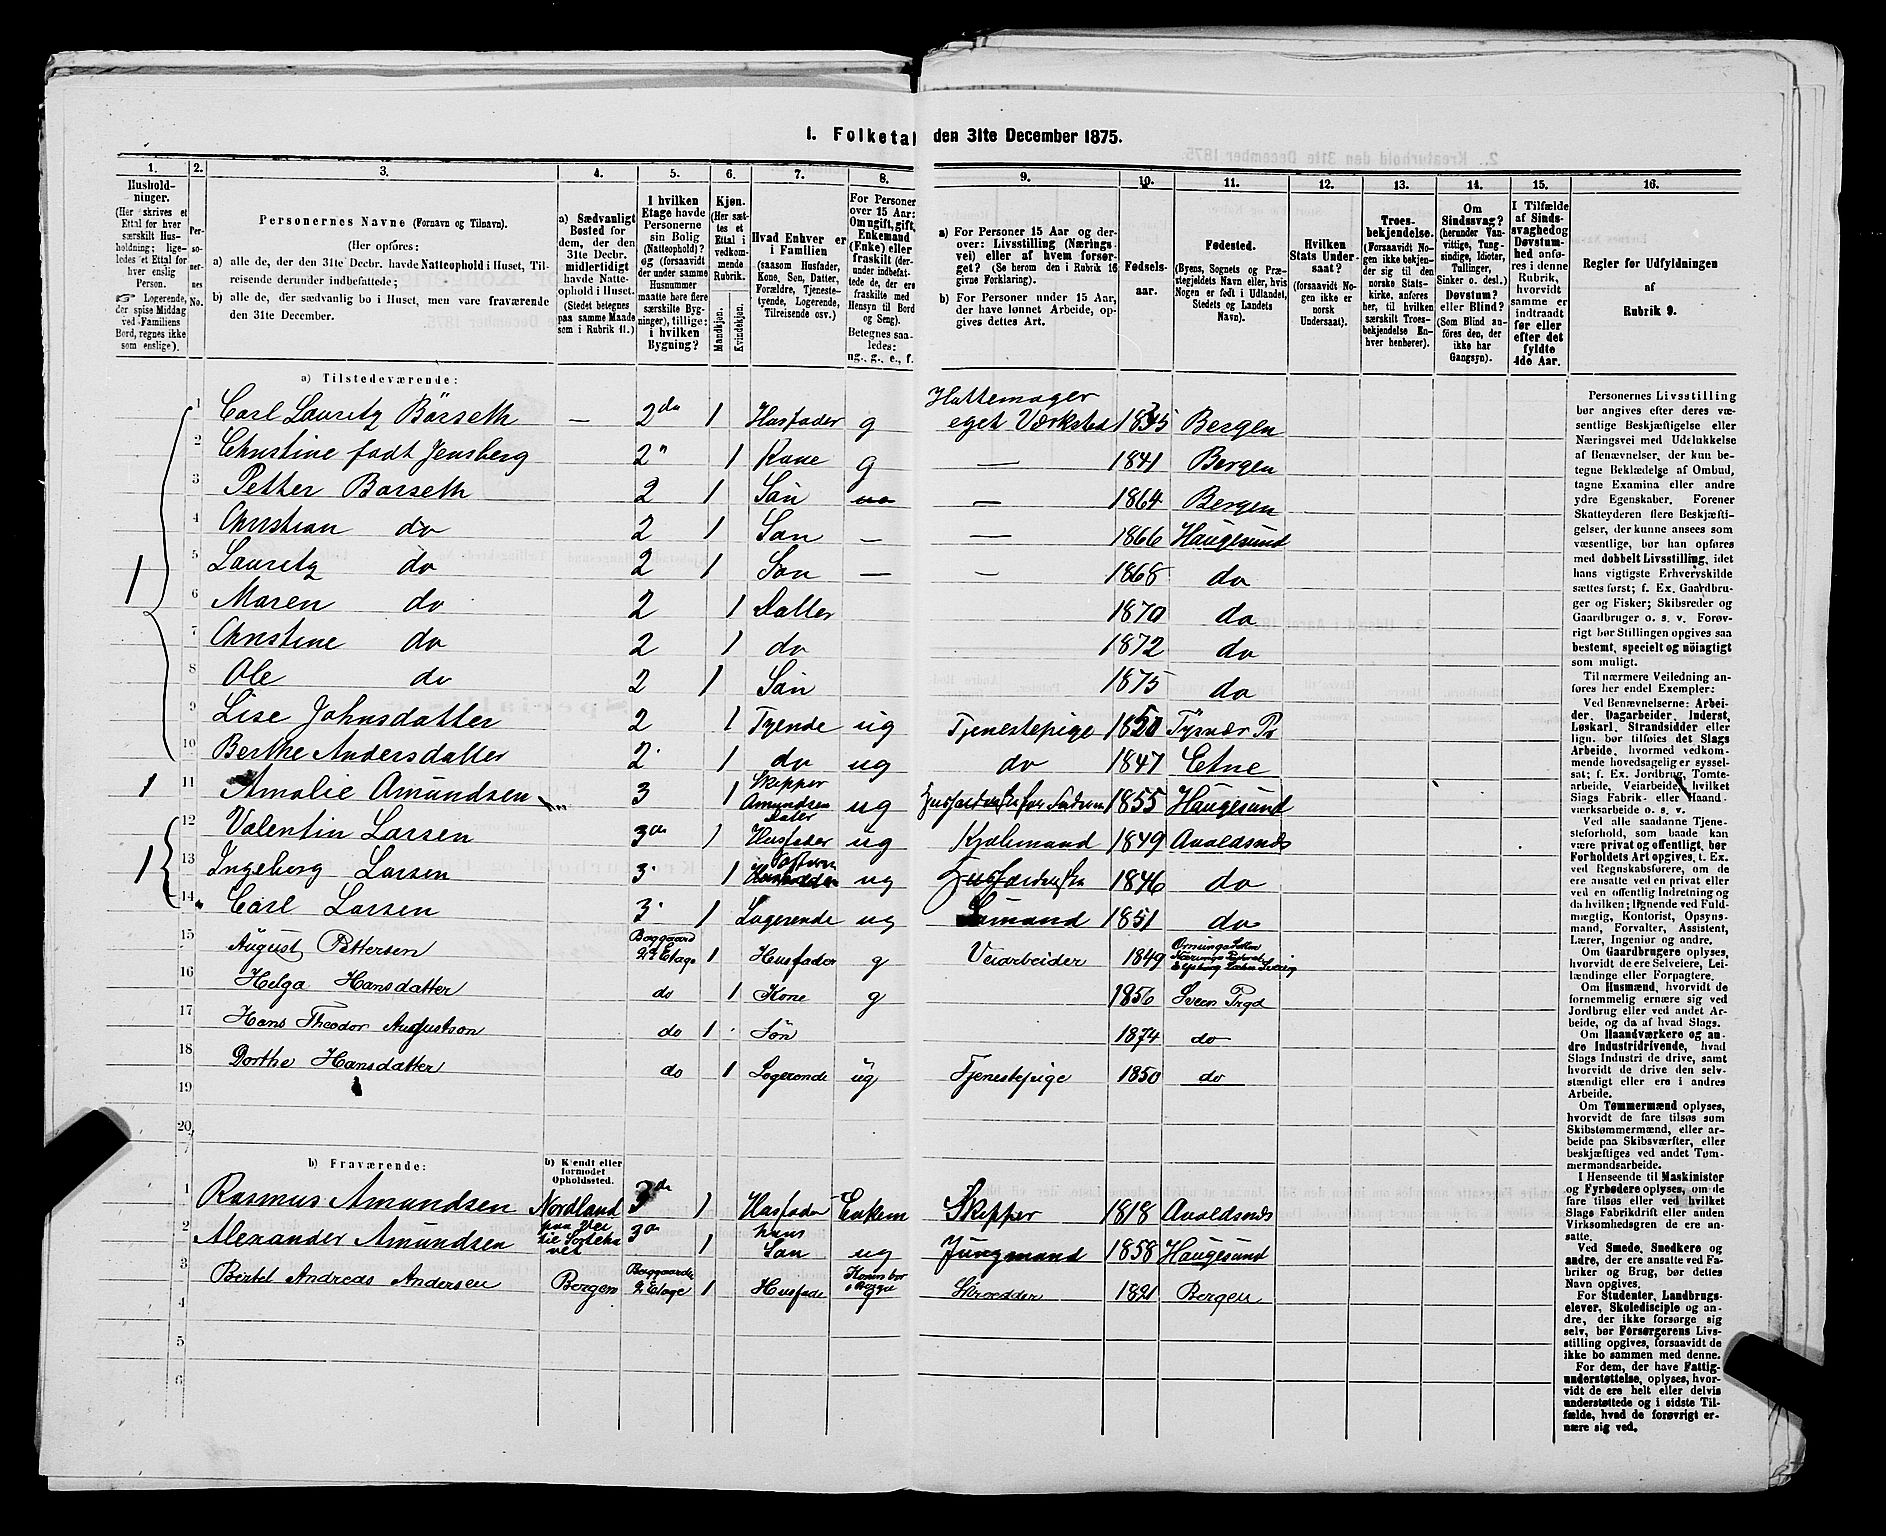 1. Folketal den 31te December 1875.
1. 2. 3. 4. 5. 6. 7. 8. 9. 10. 11. 12. 13. 14. 15. 16.
Hushold-
ninger.
(Her skrives et
Ettal for hver
særskilt Hus-
holdning; lige-
ledes et Ettal for
hver enslig
Person.
☞ Logerende,
der spise Middag
ved Familiens
Bord, regnes ikke
som enslige).
Per-
so-
ner-
nes
No.
Personernes Navne (Fornavn og Tilnavn).
(Her opføres:
a) alle de, der den 31te Decbr. havde Natteophold i Huset, Til-
reisende derunder indbefattede;
b) alle de, der sædvanlig bo i Huset, men vare fraværende
den 31te December.
a) Sædvanligt
Bosted for
dem, der den
31te Decbr.
midlertidigt
havde Natte-
ophold i Huset.
(Stedet betegnes
paa samme Maade
som i Rubrik 11.)
I hvilken
Etage havde
Personerne
sin Bolig
(Natteophold)?
og (forsaavidt
der under samme
Husnummer
maatte høre flere
særskilte Byg-
ninger), tillige:
i hvilken
Bygning?
Kjøn.
(Her sæt-
tes et
Ettal i
vedkom-
mende
Rubrik.
Mandkjøn.
Kvindekjøn.
Hvad Enhver er
i Familien
(saasom Husfader,
Kone, Søn, Datter,
Forældre, Tjeneste-
tyende, Logerende,
Tilreisende osv.)
For Personer
over 15 Aar:
Om ugift, gift,
Enkemand
(Enke) eller
fraskilt (der-
under indbefat-
tede de, der ere
fraskilte med
Hensyn til Bord
og Seng).
Betegnes saa-
ledes:
ug., g., e., f.
a) For Personer 15 Aar og der-
over: Livsstilling (Nærings-
vei) eller af hvem forsør-
get? (Se herom den i Rubrik 16
givne Forklaring).
b) For Personer under 15 Aar,
der have lønnet Arbeide, op-
gives dettes Art.
Fødsels-
aar.
Fødested.
(Byens, Sognets og Præ-
stegjeldets Navn eller, hvis
Nogen er født i Udlandet,
Stedets og Landets
Navn).
Hvilken
Stats Under-
saat?
(forsaavidt No-
gen ikke er
norsk
Undersaat).
Troes-
bekjendelse.
(Forsaavidt No-
gen ikke bekjen-
der sig til den
norske Stats-
kirke, anføres
her, til hvilken
særskilt Troes-
bekjendelse En-
hver henhører).
Om
Sindssvag?
(herunder Van-
vittige, Tung-
sindige, Idioter,
Tullinger,
Sinker o. desl.)
Døvstum?
eller Blind?
(Som Blind an-
føres den, der
ikke har
Gangsyn).
I Tilfælde
af Sinds-
svaghed og
Døvstum-
hed anfø-
res i denne
Rubrik,
hvorvidt
samme er
indtraadt
før eller
efter det
fyldte
4de Aar.
Regler for Udfyldningen
af
Rubrik 9.
a) Tilstedeværende:
1 Carl Lauritz Börseth — 2da 1 Husfader g Hattemager
eget Værksted 1835 Bergen
2 Christine født Jensberg 2" 1 Kone g — 1841 Bergen
3 Petter Borseth 2 1 Sön — 1864 Bergen
4 Christian do 2 1 Søn — — 1866 Haugesund
1 5 Lauritz do 2 1 Søn — — 1868 do
6 Maren do 2 1 Datter 1870 do
7 Christine do 2 1 do 1872 do
8 Ole do 2 1 Sön 1875 do
9 Lise Johnsdatter 2 1 Tyende ug Tjenestepige 1850 Tysvær P
10 Berthe Andersdatter 2 1 do ug do 1847 Etne
1 11 Amalie Amundsen 3 1 Skipper
Amundsen
Dater ug 1855 Haugesund
12 Valentin Larsen 3die 1 Husfader ug 1849 Avaldsnæs
1 13 Ingeborg Larsen 3 1 ug 1846 do
14 Carl Larsen 3 1 Logerende ug Sömand 1851 do
15 August Pettersen Baggaard
2 Etage 1 Husfader g Veiarbeider 1849
16 Helga Hansdatter do 1 Kone g 1856 Sveen Prgd
17 Hans Theodor Augustson do 1 Sön 1874 do
18 Dorthe Hansdatter do 1 Logerende ug Tjenestepige 1850 do
19
20
b) Fraværende:
b) Kjendt eller
formodet
Opholdssted.
1 Rasmus Amundsen Nordland 3de 1 Husfader Enkem Skipper 1818 Avaldsnæs
2 Alexander Amundsen paa Vei
til Sorteha
vet 3de 1 hans
Søn ug Jungmand 1858 Haugesund
3 Bertel Andreas Andersen Bergen Baggaarde
2 Etage 1 Husfade Konen bor
i Bergen
g Skrædder 1821 Bergen
4
5
6
Personernes Livsstilling
bør angives efter deres væ-
sentlige Beskjæftigelse eller
Næringsvei med Udelukkelse
af Benævnelser, der kun be-
tegne Beklædelse af Ombud,
tagne Examina eller andre
ydre Egenskaber. Forener
Skatteyderen flere Beskjæfti-
gelser, der kunne ansees som
væsentlige, bør han opføres
med dobbelt Livsstilling, idet
hans vigtigste Erhvervskilde
sættes først; f. Ex. Gaardbru-
ger og Fisker; Skibsreder og
Gaardbruger o. s. v. Forøv-
rigt bør Stillingen opgives saa
bestemt, specielt og nöiagtigt
som muligt.
Til nærmere Veiledning an-
føres her endel Exempler:
Ved Benævnelserne: Arbei-
der, Dagarbeider, Inderst,
Løskarl, Strandsidder eller
lign. bør tilføies det Slags
Arbeide, hvormed vedkom-
mende hovedsagelig er syssel-
sat; f. Ex. Jordbrug, Tomte-
arbeide, Veiarbeide, hvilket
Slags Fabrik- eller Haand-
værksarbeide o. s. v.
Ved alle saadanne Tjene-
steforhold, som baade kan
være privat og offentligt, bør
Forholdets Art opgives, t. Ex.
ved Regnskabsførere, om de
ere ansatte ved en privat eller
ved en offentlig Indretning og
da hvilken; lignende ved Fuld-
mægtig, Kontorist, Opsyns-
mand, Forvalter, Assistent,
Lærer, Ingeniør og andre.
Om Gaardbrugere oplyses,
hvorvidt de ere Selveiere, Lei-
lændinge eller Forpagtere.
Om Husmænd, hvorvidt de
fornemmelig ernære sig ved
Jordbrug eller ved andet Ar-
beide, og da af hvad Slags.
Om Haandværkere og an-
dre Industridrivende, hvad
Slags Industri de drive, samt
hvorvidt de drive den selv-
stændigt eller ere i andres
Arbeide.
Om Tømmermænd oplyses,
hvorvidt de fare tilsøs som
Skibstømmermænd, eller ar-
beide paa Skibsværfter, eller
beskjæftiges ved andet Tøm-
mermandsarbeide.
I Henseende til Maskinister
og Fyrbødere oplyses, om de
fare tilsøs eller ved hvilket
Slags Fabrikdrift eller anden
Virksomhedsgren de ere an-
satte.
Ved Smede, Snedkere og
andre, der ere ansatte ved Fa-
briker og Brug, bør dettes
Navn opgives.
For Studenter, Landbrugs-
elever, Skoledisciple og an-
dre, der ikke forsørge sig
selv, bør Forsørgerens Livs-
stilling opgives, forsaavidt de
ikke bo sammen med denne.
For dem, der have Fattig-
understøttelse, oplyses, hvor-
vidt de ere helt eller delvis
understøttede og i sidste Til-
fælde, hvad de forøvrigt er-
nære sig ved.